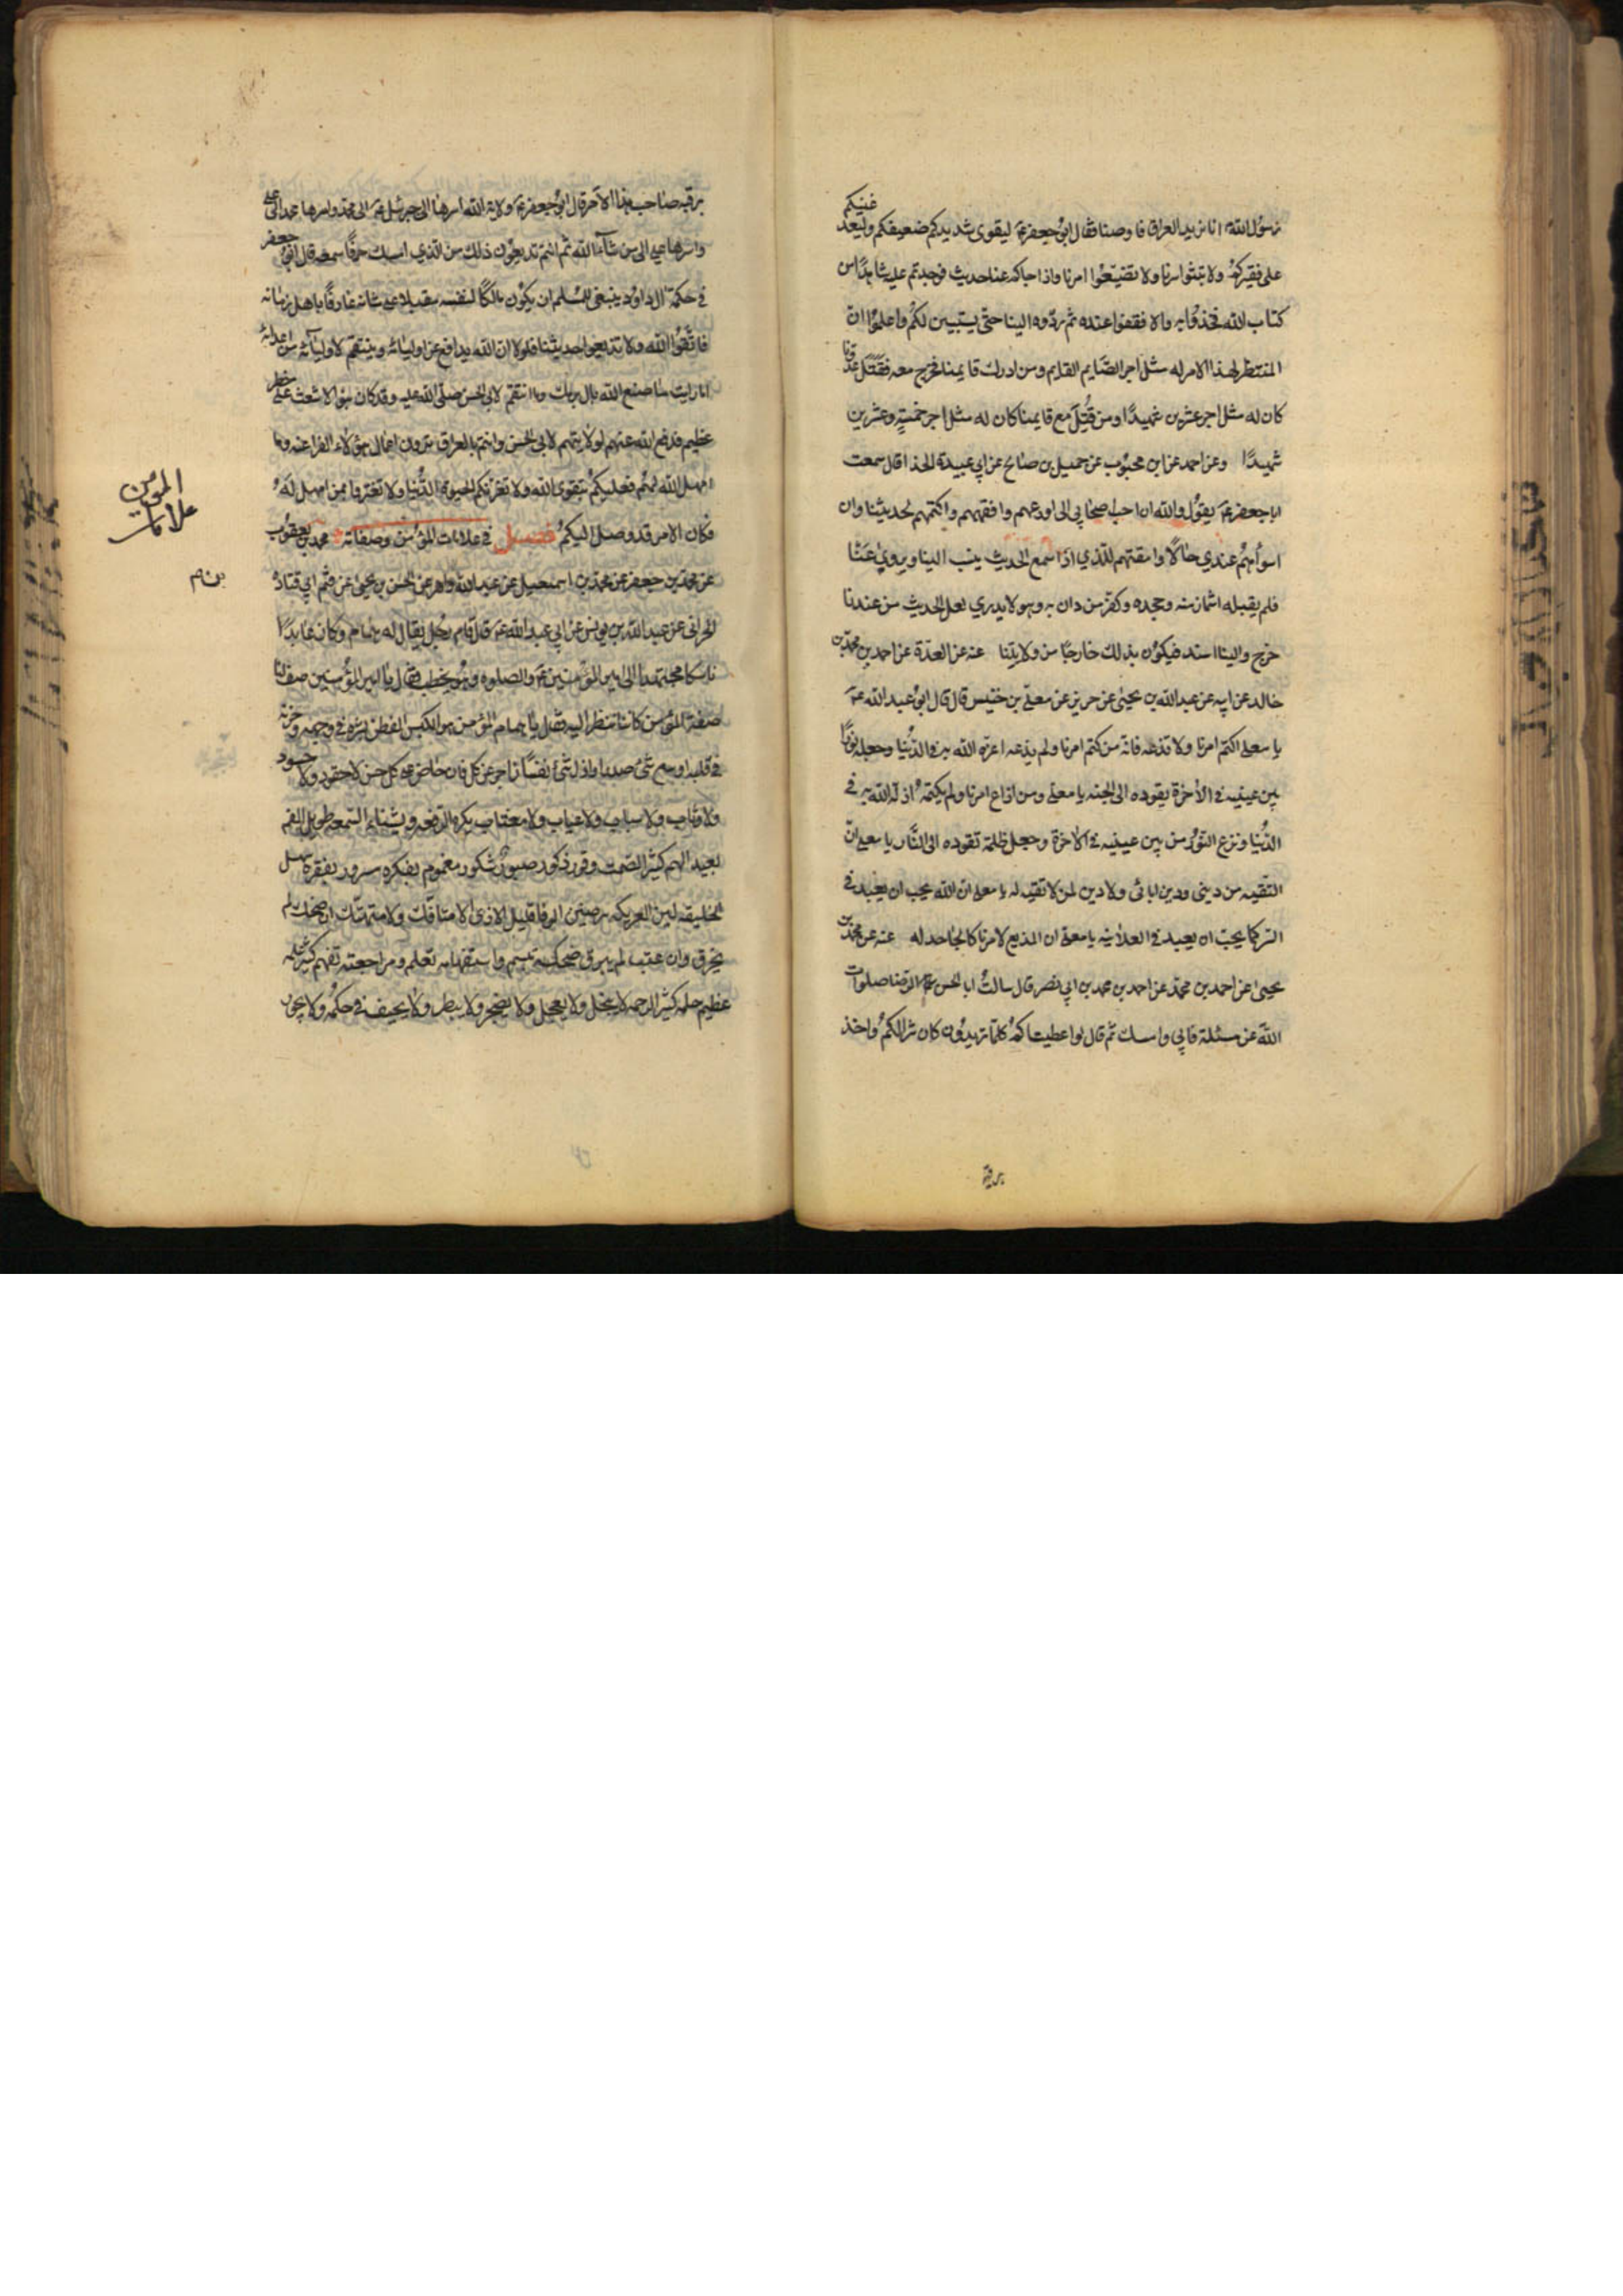 غنيكم
رسول الله انا نريد العراق فاوصنا فقال ابو جعفر ع ليقوى شديدكم ضعيفكم وليعد
على فقيركم ولا تبثوا سرنا ولا تضيّعوا امرنا واذا جاءكم عنا حديث فوجدتم عليه شاهدًا من
كتاب الله فخذوا به والا فقفوا عنده ثم ردّوه الينا حتى يستبين لكم واعلموا انّ
المنتظر لهذا الامر له مثل اجر الصّايم القايم ومن ادرك قايمنا فخرج معه فقتل عدونا
كان له مثل اجر عشرين شهيدًا ومن قُتِلَ مع قايمنا كان له مثل اجر خمسةٍ وعشرين
شهيدًا وعن احمد عن ابن محبوب عن جميل بن صالح عن ابي عبيدة الحذا قال سمعت
ابا جعفر ع يقول والله ان احب اصحابي الى اورعهم وافقههم واكتمهم لحديثنا وان
اسوأهم عندي حالًا وامقتهم للذي اذا سمع الحديث ينسب الينا ويروي عنّا
فلم يقبله اشمأز منه وجحده وكفر من دان به وهو لا يدري لعل الحديث من عندنا
خرج والينا اسند فيكون بذلك خارجًا من ولايتنا عنه عن العدّة عن احمد بن محمد بن
خالد عن ابيه عن عبد الله بن يحيى عن حريز عن معلى بن خنيس قال قال ابو عبد الله ع
يا معلى اكتم امرنا ولا تذعه فانه من كتم امرنا ولم يذعه اعزه الله به في الدّنيا وجعله نورًا
بين عينيه في الآخرة يقوده الى الجنه يا معلى ومن اذاع امرنا ولم يكتمه اذله الله به في
الدّنيا ونزع النّور من بين عينيه في الآخرة وجعل ظلمة تقوده الى النّار يا معلى انّ
التقيه من ديني ودين ابائي ولا دين لمن لا تقيه له يا معلى انّ الله يحب ان يعبد في
السر كما يحبّ ان يعبد في العلانيه يا معلى ان المذيع لامرنا كالجاحد له عنه عن محمد بن
يحيى عن احمد بن محمد عن احمد بن محمد بن ابي نصر قال سالتُ ابا الحسن الرضا صلوات
الله عن مسئلة فابى وامسك ثم قال لو اعطيناكم كلما تريدون كان شرا لكم واخذ
برقبه
برقبه صاحب هذا الامر قال ابو جعفر ع ولاية الله اسرها الى جبرئيل ع الى محمد واسرها محمد الى على
واسرها على الى من شآء الله ثم انتم تذيعون ذلك من الذي امسك حرفًا سمعه قال ابو جعفر
في حكمة ال داود ينبغي للمسلم ان يكون مالكًا لنفسه مقبلا على شانه عارفًا باهل زمانه
فاتّقوا الله ولا تذيعوا حديثنا فلولا ان الله يدافع عن اوليائه وينتقم لاوليائه من اعدائه
اما رايت ما صنع الله بال برمك وما انتقم لابي الحسن صلى الله عليه وقد كان بنو الاشعث على خطر
عظيم فدفع الله عنهم لولايتهم لابي الحسن وانتم بالعراق ترون اعمال هؤلاء الفراعنه وما
امهل الله لهم فعليكم بتقوى الله ولا تغرّنكم الحيوة الدّنيا ولا تغتروا بمن امهل له
فكان الامر قد وصل اليكم فصل في علامات المؤمن وصفاته محمد بن يعقوب
عن محمد بن جعفر عن محمد بن اسمعيل عن عبد الله داهر عن الحسن بن يحيى عن قثم ابي قتادة
الحراني عن عبد الله بن يونس عن ابي عبد الله ع قال قام رجل يقال له همام وكان عابدًا
ناسكا مجتهدا الى امير المؤمنين ع والصلوه وهو يخطب فقال يا امير المؤمنين صف لنا
صفة المؤمن كاننا ننظر اليه فقال يا همام المؤمن هو الكيس الفطن بشره في وجهه وحزنه
في قلبه اوسع شئ صدرا واذل شئ نفسًا زاجر عن كل فان حاض على كل حسن لا حقود ولا حسود
ولا وثاب ولا سباب ولا عياب ولا مغتاب يكره الرفعه ويشناء السّمعه طويل الغم
بعيد الهم كثير الصمت وقور ذكور صبور شكور مغموم بفكره مسرور بفقره سهل
الخليقه لين العريكه رصين الوفا قليل الاذى لا متافك ولا متهتك ان ضحك لم
يخرق وان غضب لم ينزق ضحكه تبسم واستفهامه تعلم ومراجعته تفهم كثير علمه
عظيم حلمه كثير الرحمه لا يبخل ولا يعجل ولا يضجر ولا يبطر ولا يحيف في حكمه ولا يجور
المومن
علامات